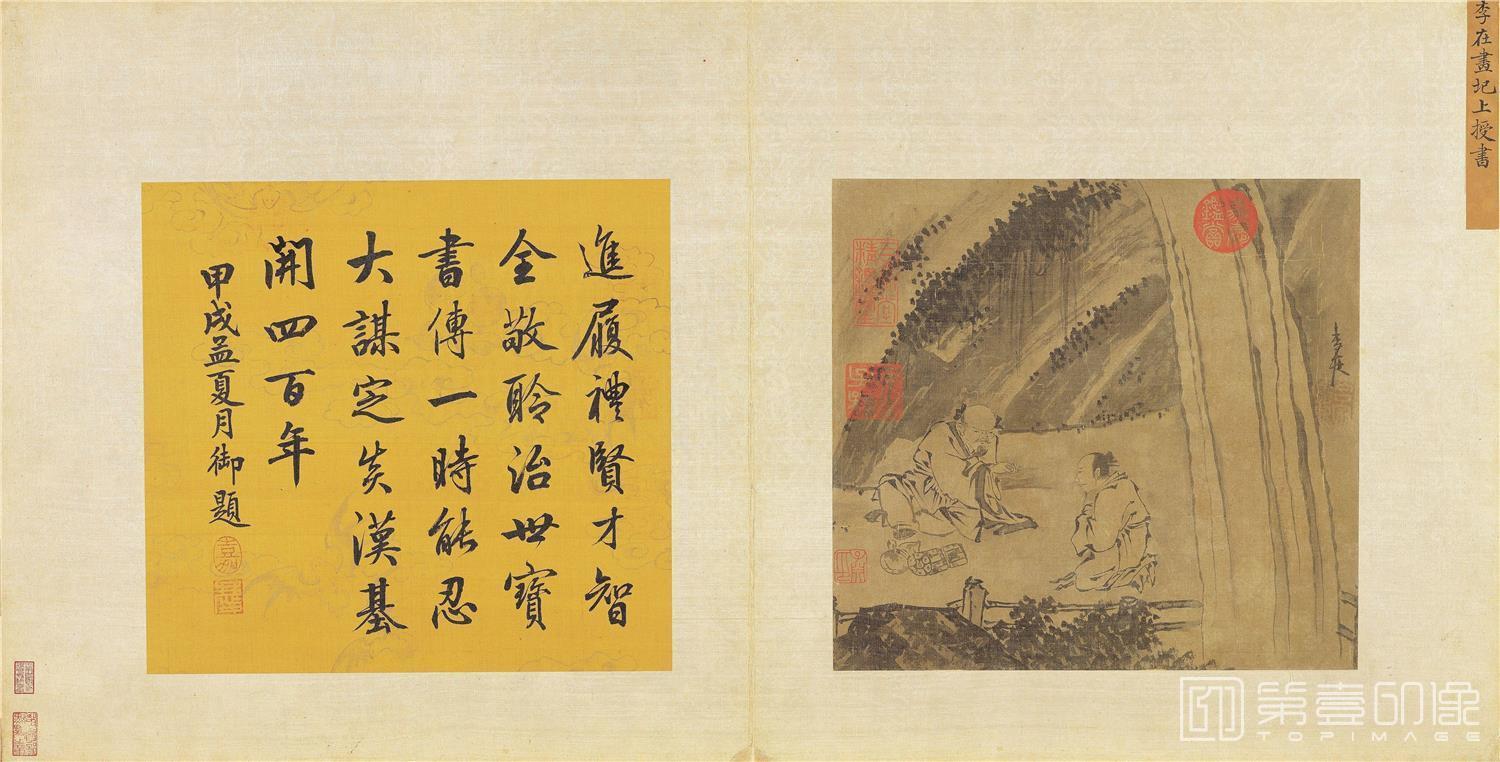 李在畫圯上授書
李在
進履禮賢才智
全敬聆治世寶
書傳一時能忍
大謀定炎漢基
開四百年
甲戌孟夏月御題
嘉
第壹印像
TOPIMAGE